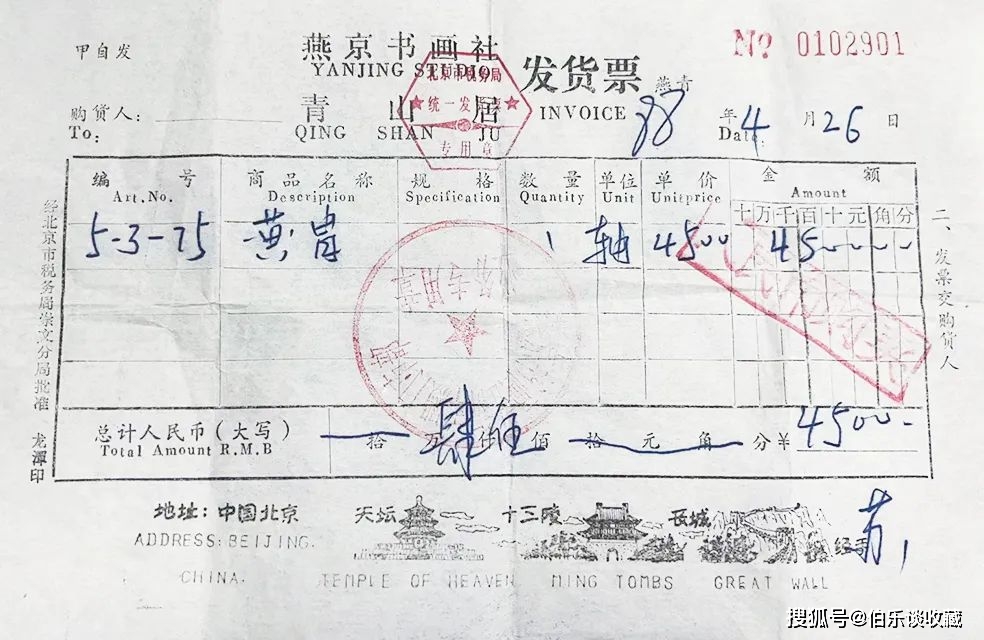 甲自发
燕京书画社
YANJING STUDIO
发货票
燕青
№ 0102901
购货人：
To:
青山居
QING SHAN JU
INVOICE
88年4月26日
Date:
北京市税务局
统一发票
专用章
编号 商品名称 规格 数量 单位 单价 金额
Art.No. Description Specification Quantity Unit Unitprice Amount
十万千百十元角分
5-3-75 黄胄 1 轴 4500 450000
总计人民币（大写） 拾万肆仟伍佰拾元角分¥4500-
Total Amount R.M.B
经北京市税务局崇文分局批准 龙潭印
二、发票交购货人
地址：中国北京 天坛 十三陵 长城
经手
ADDRESS:BEIJING.
CHINA. TEMPLE OF HEAVEN MING TOMBS GREAT WALL
搜狐号@伯乐谈收藏